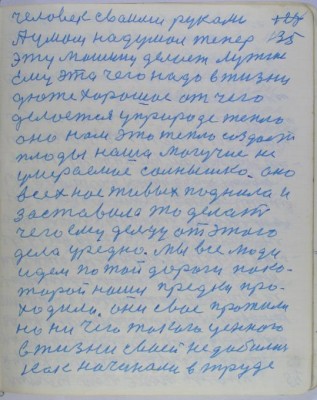 человек своими руками
А умом надумал теперь 135
эту машину делает лучше
ему эта чего надо в жизни
дюже хорошое от чего
делается у природе тепло
оно нам это тепло создает
плоды наша могучие не
умераемое солнышко. оно
всех нас живых подняла и
заставила то делать
чего ему делцу от этого
дела вредно. мы все люди
идем по той дороги по ко-
торой наши предки про-
ходили. они свое прожили
но ни чего такого ценного
в жизни своей не добились
как начинали в труде